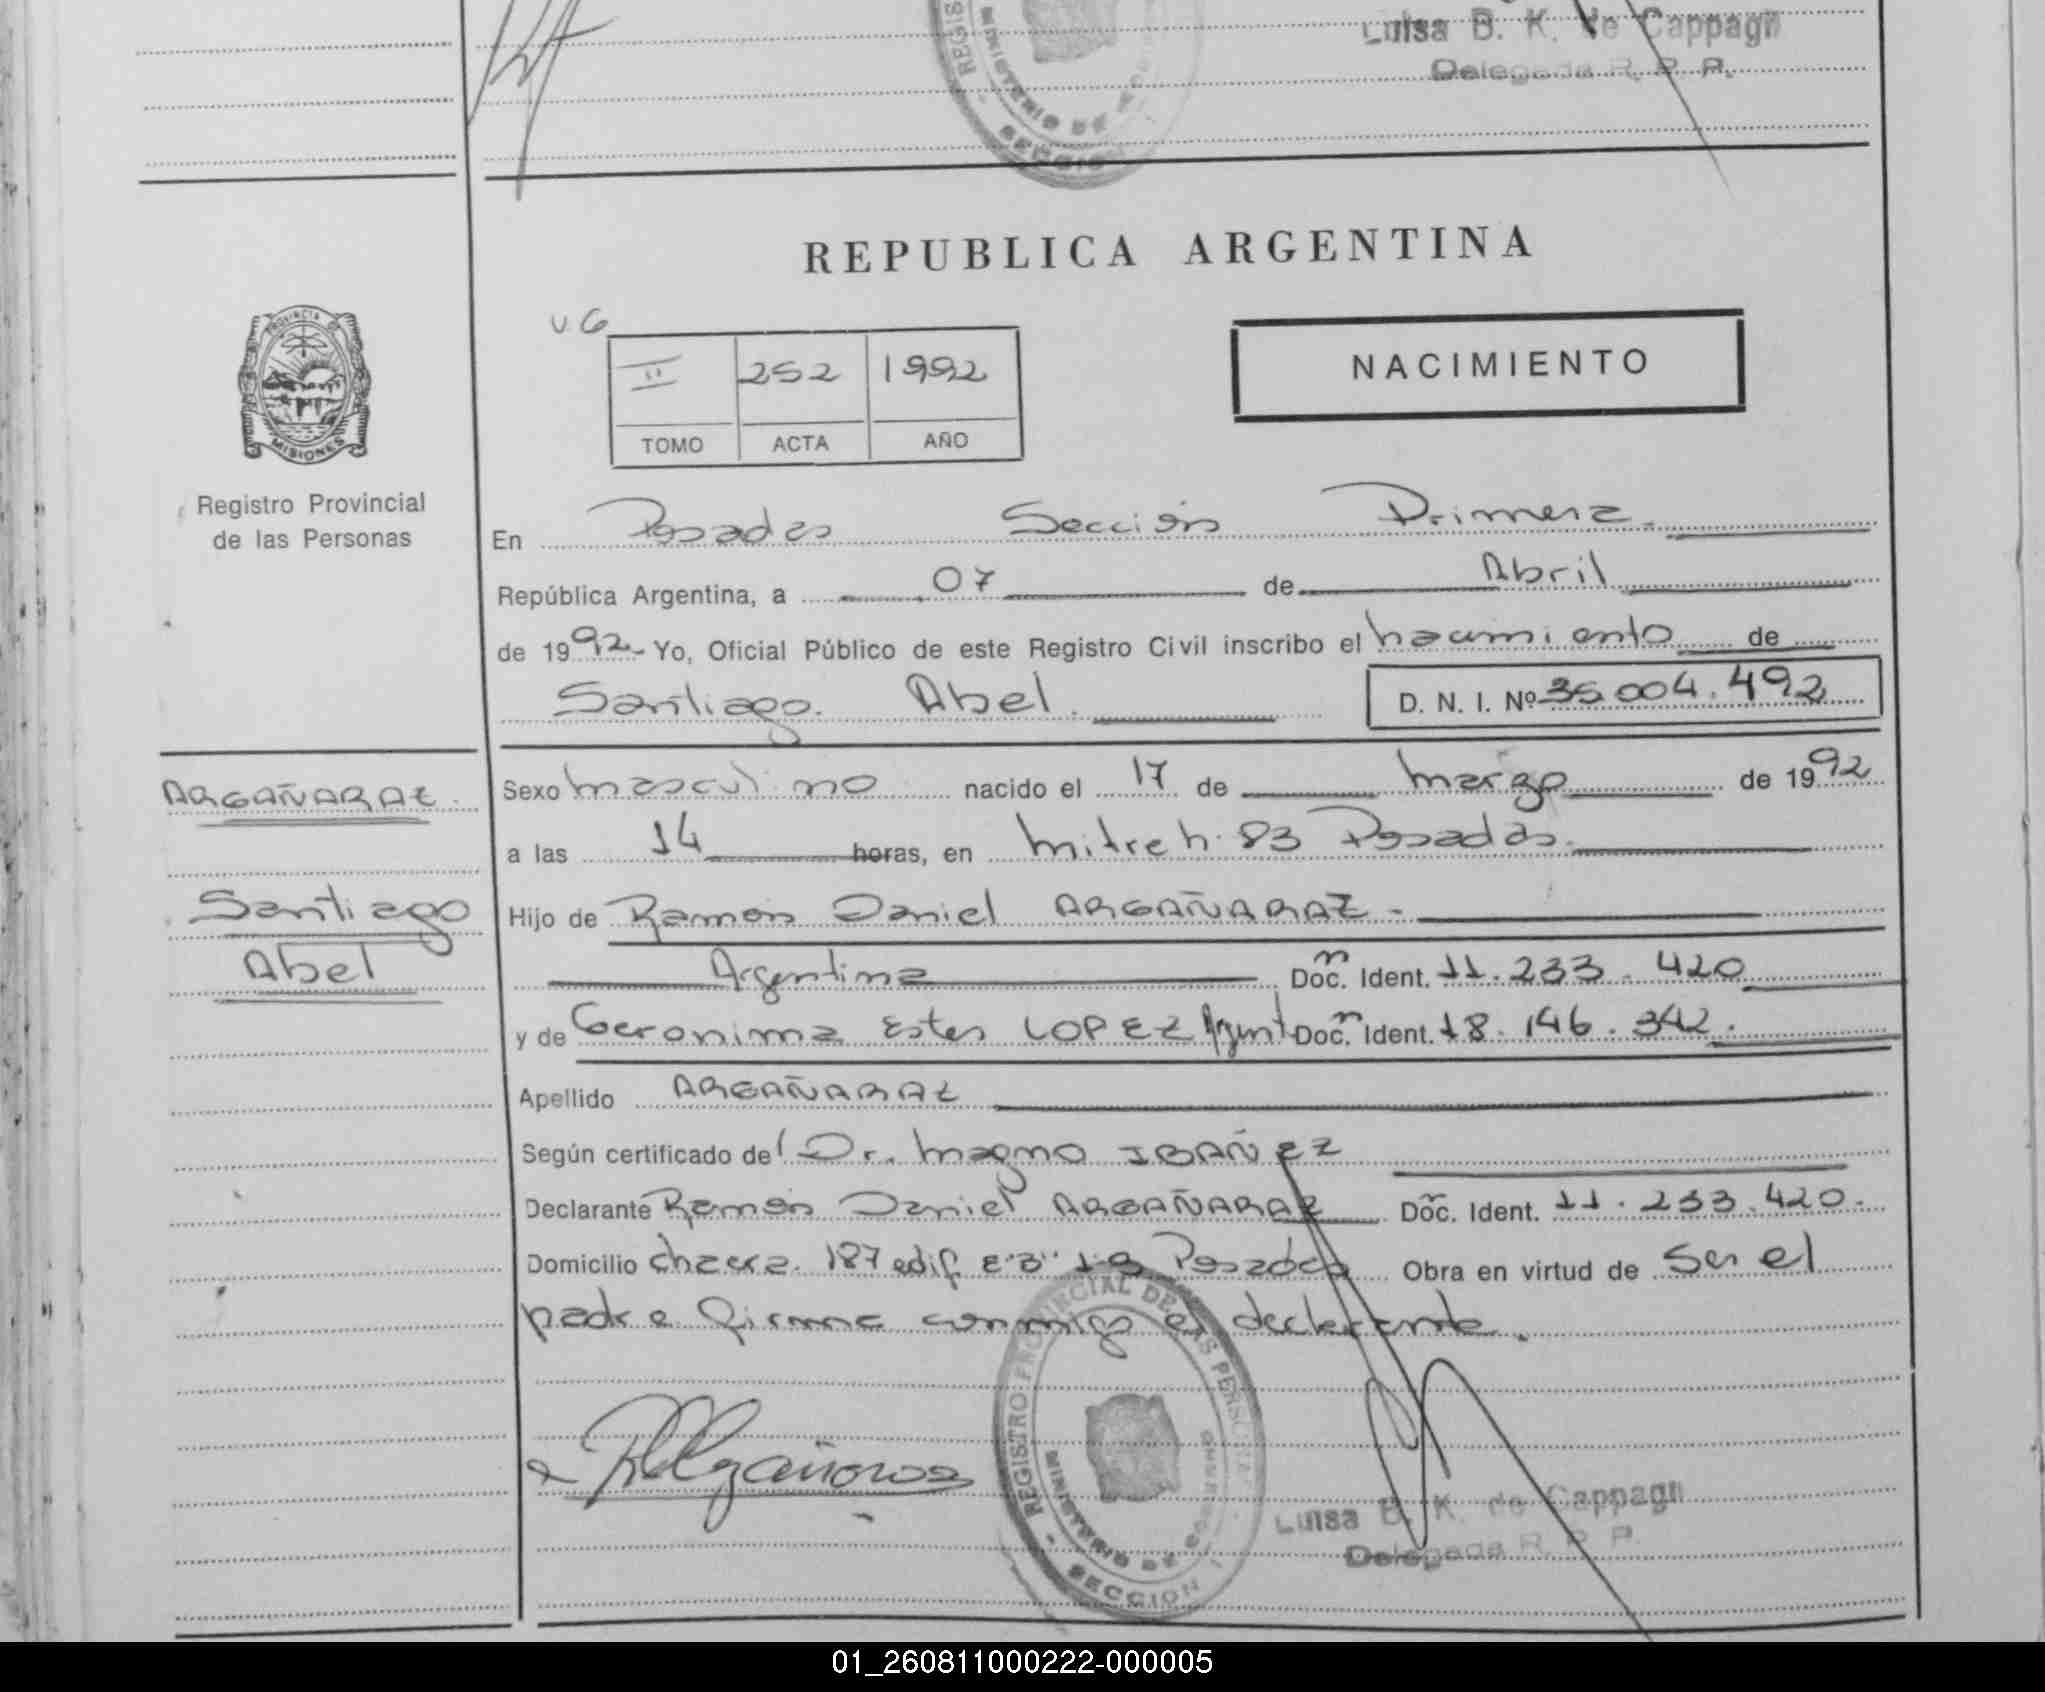 Luisa B. K. de Cappagli
Delegada R. P. P.
MINISTERIO DE
SECCION
REPUBLICA ARGENTINA
PROVINCIA DE
MISIONES
Registro Provincial
de las Personas
V. G
II 252 1992
TOMO ACTA AÑO
NACIMIENTO
En Posadas Sección Primera
República Argentina, a 07 de Abril
de 1992 - Yo, Oficial Público de este Registro Civil inscribo el nacimiento de
Santiago Abel. D. N. I. Nº 36.004.492
ARGAÑARAZ.
Santiago
Abel
Sexo masculino nacido el 17 de marzo de 1992
a las 14 horas, en Mitre n. 83 Posadas.
Hijo de Ramón Daniel ARGAÑARAZ -
Argentina Doc. Ident. 11.233.420
y de Geronima Ester LOPEZ Argent Doc. Ident. 18.146.342.
Apellido ARGAÑARAZ
Según certificado del Dr. Magno IBAÑEZ
Declarante Ramón Daniel ARGAÑARAZ Doc. Ident. 11.233.420.
Domicilio chacra 187 edif Posadas Obra en virtud de Ser el
padre firma conmigo el declarante.
REGISTRO PROVINCIAL DE LAS PERSONAS
MINISTERIO DE GOBIERNO
SECCION
Luisa B. K. de Cappagli
Delegada R. P. P.
01_260811000222-000005